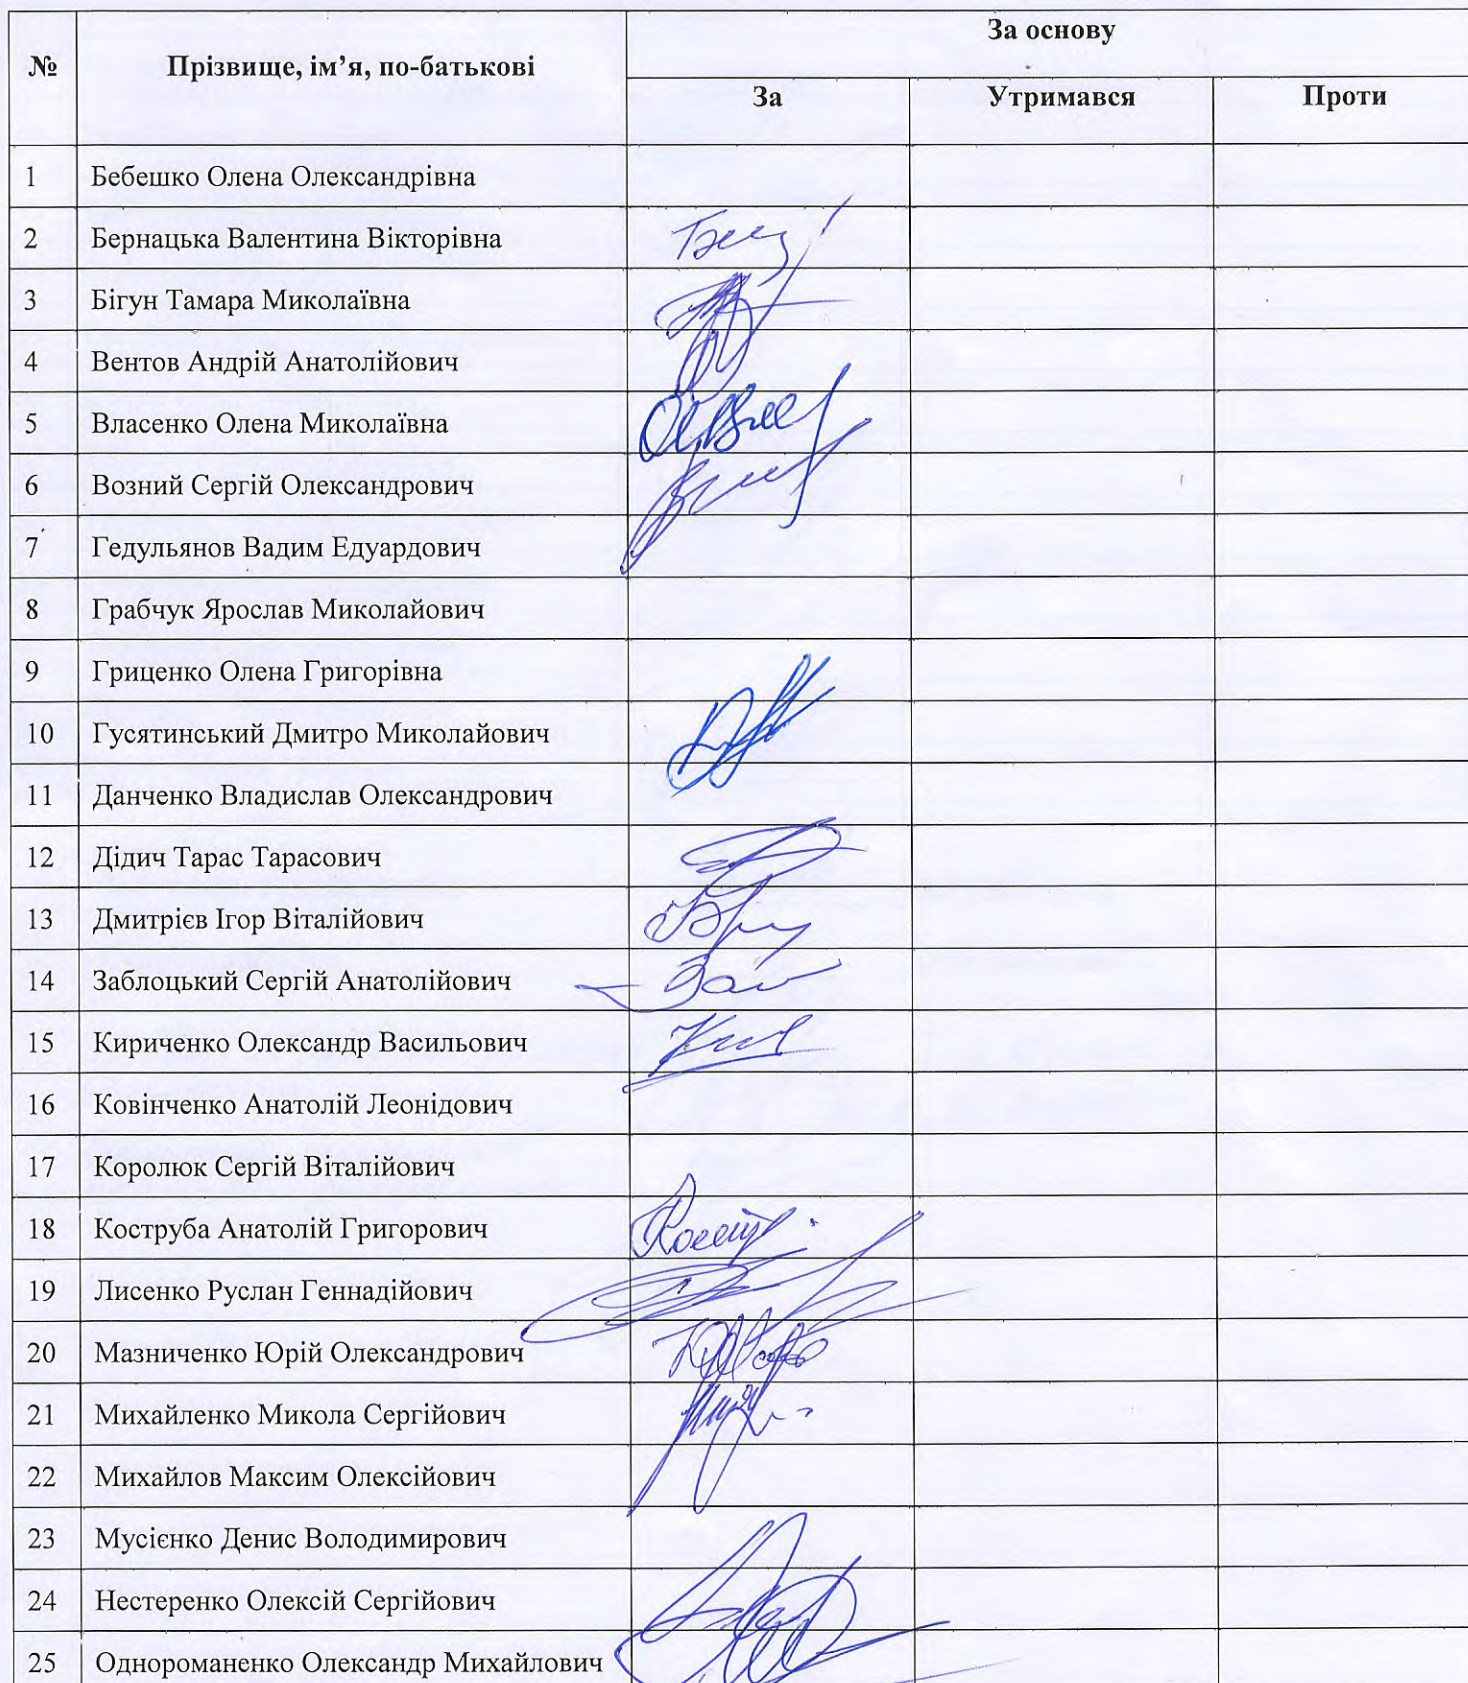 № Прізвище, ім’я, по-батькові За основу
За Утримався Проти
1 Бебешко Олена Олександрівна
2 Бернацька Валентина Вікторівна
3 Бігун Тамара Миколаївна
4 Вентов Андрій Анатолійович
5 Власенко Олена Миколаївна
6 Возний Сергій Олександрович
7 Гедульянов Вадим Едуардович
8 Грабчук Ярослав Миколайович
9 Гриценко Олена Григорівна
10 Гусятинський Дмитро Миколайович
11 Данченко Владислав Олександрович
12 Дідич Тарас Тарасович
13 Дмитрієв Ігор Віталійович
14 Заблоцький Сергій Анатолійович
15 Кириченко Олександр Васильович
16 Ковінченко Анатолій Леонідович
17 Королюк Сергій Віталійович
18 Коструба Анатолій Григорович
19 Лисенко Руслан Геннадійович
20 Мазниченко Юрій Олександрович
21 Михайленко Микола Сергійович
22 Михайлов Максим Олексійович
23 Мусієнко Денис Володимирович
24 Нестеренко Олексій Сергійович
25 Однороманенко Олександр Михайлович